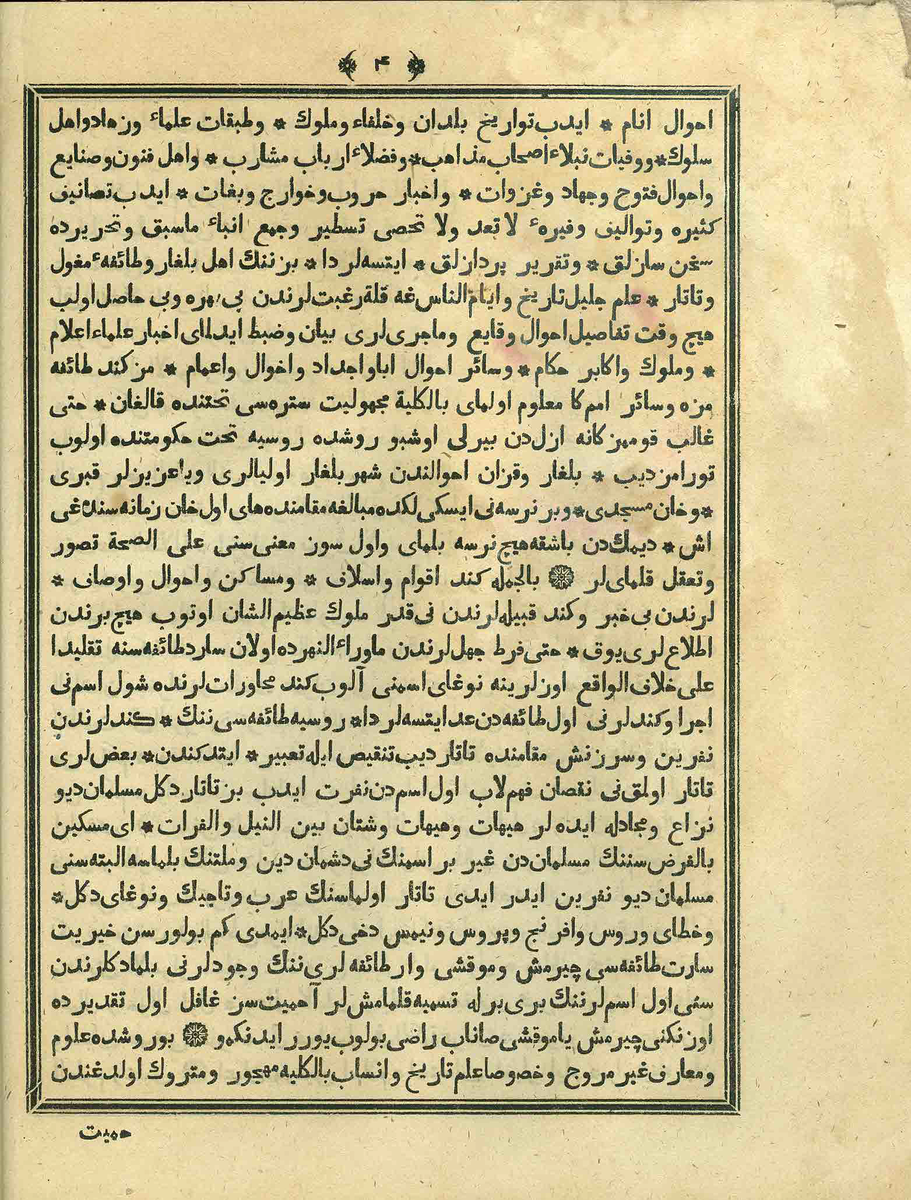 ﴿ ۴ ﴾
احوال انام * ایدب تواریخ بلدان وخلفاء وملوك * وطبقات علماء وزهاد واهل
سلوك * ووفیات نبلاء اصحاب مذاهب * وفضلاء ارباب مشارب * واهل فنون وصنایع
واحوال فتوح وجهاد وغزوات * واخبار حروب وخوارج وبغات * ایدب تصانیف
كثیره وتوالیف وفیرهٔ لا تعد ولا تحصی تسطیر وجمع انباء ماسبق وتحریرده
سخن سازلق * وتقریر پردازلق * ایتسه لردا * بزننك اهل بلغار وطائفهٔ مغول
وتاتار * علم جلیل تاریخ وایام الناس غه قلة رغبت لرندن بی بهره وبی حاصل اولب
هیچ وقت تفاصیل احوال وقایع وماجری لری بیان وضبط ایدلای اخبار علماء اعلام
* وملوك واكابر حكام * وسائر احوال ابا واجداد واخوال واعمام * من كند طائفه
مزه وسائر امم كا معلوم اولمای بالكلیة مجهولیت ستره سی تحتنده قالغان * حتی
غالب قومیز كانه ازل دن بیرلی اوشبو روشده روسیه تحت حكومتنده اولوب
تورامز دیب * بلغار وقزان احوالندن شهر بلغار اولیالری ویا عزیزلر قبری
* وخان مسجدی * وبر نرسه نی ایسكی لكده مبالغه مقامنده های اول خان زمانه سنداغی
اش * دیمك دن باشقه هیچ نرسه بلمای واول سوز معنی سنی علی الصحة تصور
وتعقل قلمای لر ۞ بالجمله كند اقوام واسلاف * ومساكن واحوال واوصاف *
لرندن بی خبر وكند قبیله لرندن نی قدر ملوك عظیم الشان اوتوب هیچ برندن
اطلاع لری یوق * حتی فرط جهل لرندن ماوراء النهرده اولان سارد طائفه سنه تقلیدا
علی خلاف الواقع اوزلرینه نوغای اسمنی آلوب كند محاورات لرنده شول اسم نی
اجرا وكندلرنی اول طائفه دن عد ایتسه لردا * روسیه طائفه سی ننك * كندلرندن
نفرین وسرزنش مقامنده تاتار دیب تنقیص ایله تعبیر * ایتدكندن * بعض لری
تاتار اولق نی نقصان فهم لاب اول اسم دن نفرت ایدب بز تاتار دكل مسلمان دیو
نزاع ومجادله ایده لر هیهات وهیهات وشتان بین النیل والفرات * ای مسكین
بالفرض سننك مسلمان دن غیر بر اسمنك نی دشمان دین وملتنك بلماسه البته سنی
مسلمان دیو نفرین ایدر ایدی تاتار اولماسنك عرب وتاجیك ونوغای دكل *
وخطای وروس وافرنج وپروس ونیمس دخی دكل * ایمدی كم بولورسن خیریت
سارت طائفه سی چیرمش وموقشی وار طائفه لری ننك وجودلرنی بلمادكلرندن
سنی اول اسم لرننك بری برله تسمیه قلمامش لر آ حمیت سز غافل اول تقدیرده
اوزنكنی چیرمش یا موقشی صاناب راضی بولوب یورر ایدنكمو ۞ بو روشده علوم
ومعارف غیر مروج وخصوصا علم تاریخ وانساب بالكلیه مهجور ومتروك اولدغندن
حمیت